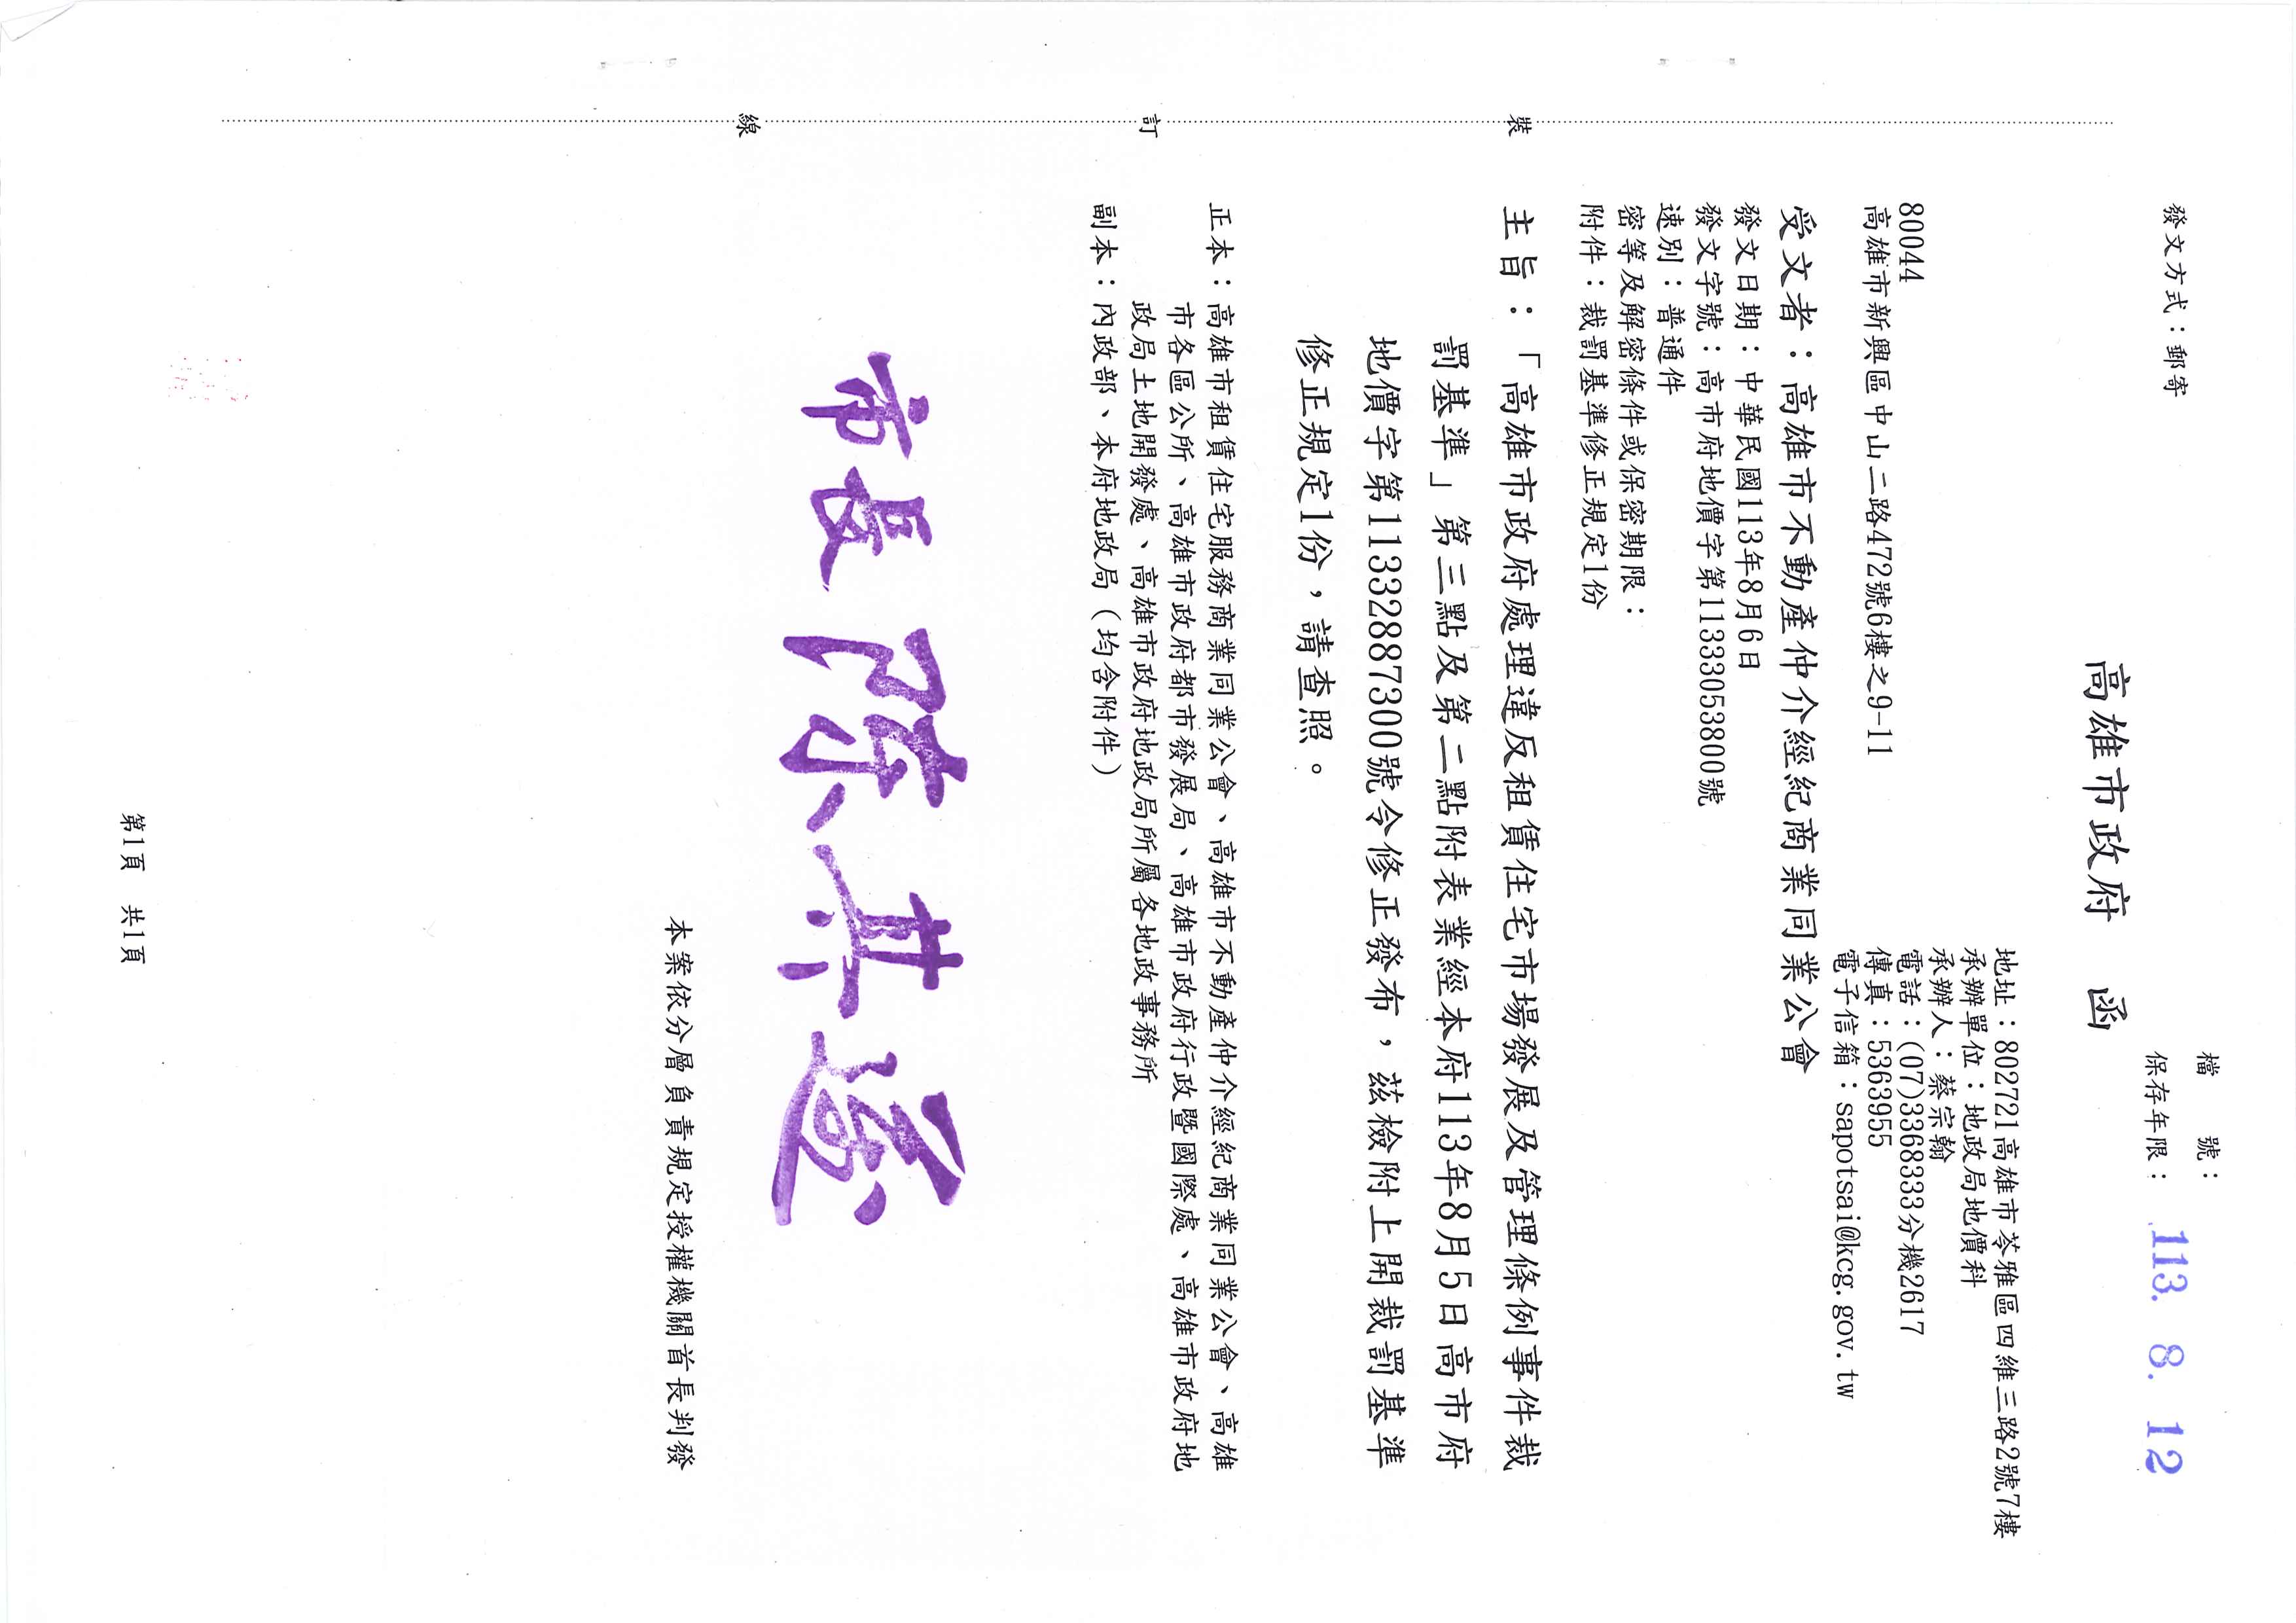 檔　　號：
發文方式：郵寄
保存年限：
113. 8. 12
高雄市政府　函
地址：802721高雄市苓雅區四維三路2號7樓
承辦單位：地政局地價科
承辦人：蔡宗翰
電話：(07)3368333分機2617
傳真：5363955
電子信箱：sapotsai@kcg.gov.tw
80044
高雄市新興區中山二路472號6樓之9-11
受文者：高雄市不動產仲介經紀商業同業公會
發文日期：中華民國113年8月6日
發文字號：高市府地價字第11333053800號
速別：普通件
密等及解密條件或保密期限：
附件：裁罰基準修正規定1份
主旨：「高雄市政府處理違反租賃住宅市場發展及管理條例事件裁
罰基準」第三點及第二點附表業經本府113年8月5日高市府
地價字第11332887300號令修正發布，茲檢附上開裁罰基準
修正規定1份，請查照。
正本：高雄市租賃住宅服務商業同業公會、高雄市不動產仲介經紀商業同業公會、高雄
市各區公所、高雄市政府都市發展局、高雄市政府行政暨國際處、高雄市政府地
政局土地開發處、高雄市政府地政局所屬各地政事務所
副本：內政部、本府地政局（均含附件）
市長 陳其邁
本案依分層負責規定授權機關首長判發
裝
訂
線
第1頁　共1頁